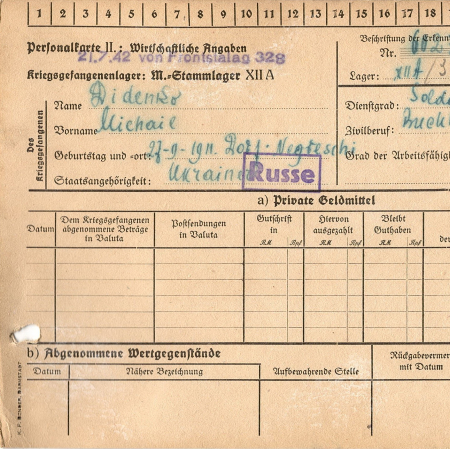 1 2 3 4 5 6 7 8 9 10 11 12 13 14 15 16 17 18
Personalkarte II.: Wirtschaftliche Angaben
21.7.42 von Frontstalag 328
Kriegsgefangenenlager: M.-Stammlager XII A
Beschriftung der Erkenn
Nr.
Lager: XIIA/3
Des Kriegsgefangenen
Name Didenko
Vorname Michail
Geburtstag und -ort: 27-9-1911 Dorf
Staatsangehörigkeit: Ukrainer
Russe
Dienstgrad: Solda
Zivilberuf: Buchh
Grad der Arbeitsfähig
a) Private Geldmittel
Datum
Dem Kriegsgefangenen abgenommene Beträge in Valuta
Postsendungen in Valuta
Gutschrift in
RM Rpf
Hiervon ausgezahlt
RM Rpf
Bleibt Guthaben
RM Rpf
der
b) Abgenommene Wertgegenstände
Datum
Nähere Bezeichnung
Aufbewahrende Stelle
Rückgabevermer
mit Datum